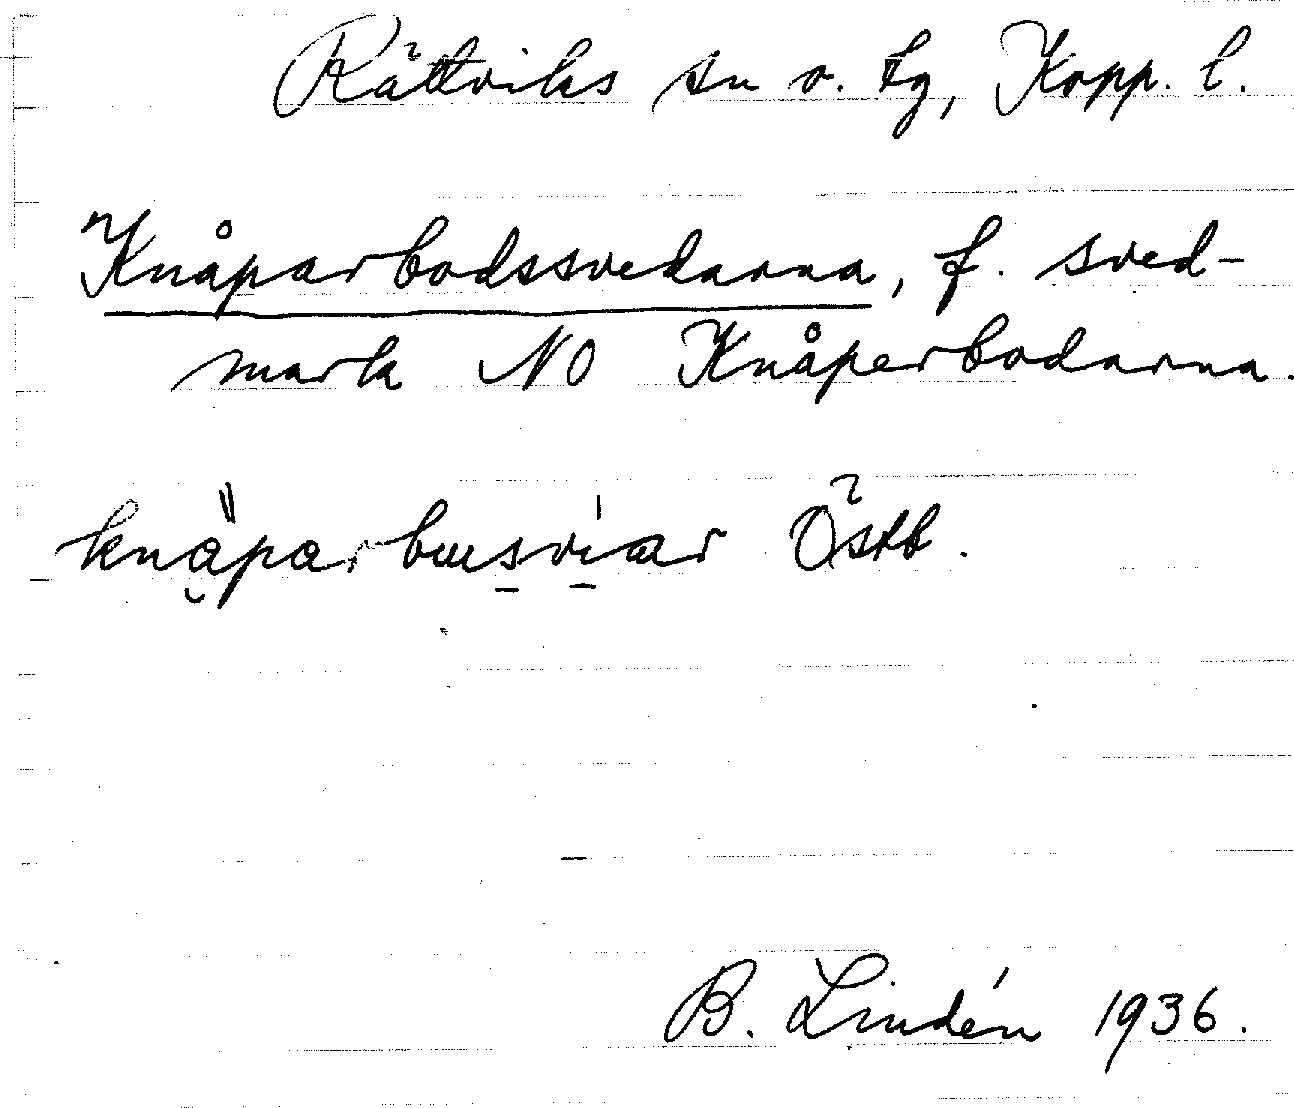 Rättviks sn o. tg, Kopp. l.
Knåparbodssvedarna, f. sved-
mark NO Knåperbodarna.
knäparbusviar Östb.
B. Lindén 1936.